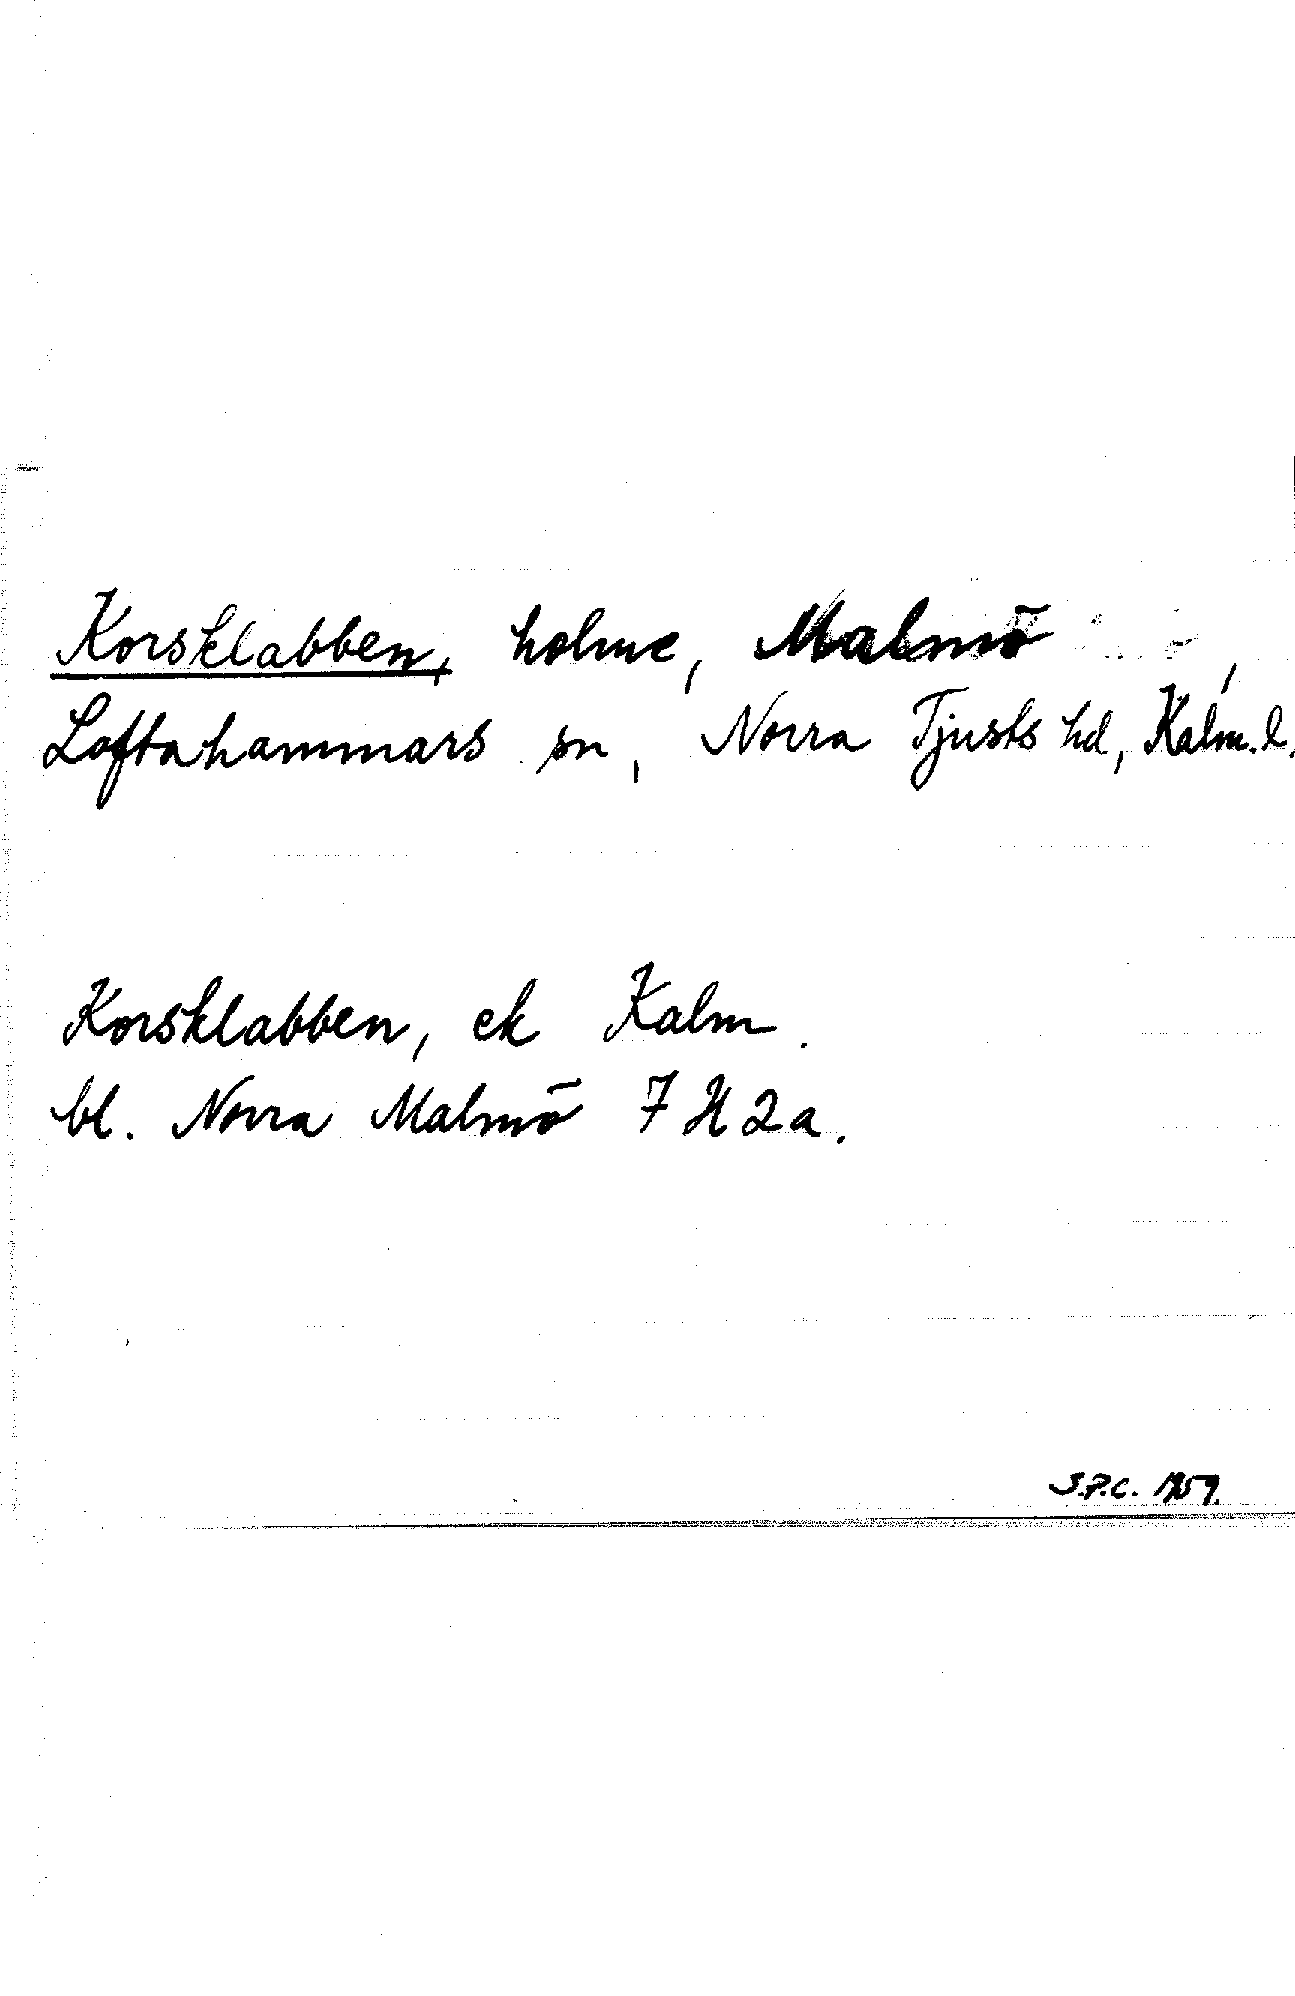 Korsklabben, holme, Malmö ,
Loftahammars sn, Norra Tjusts hd, Kalm. l.
Korsklabben, ek Kalm.
bl. Norra Malmö 7 H 2a.
S.P.C. 1959.